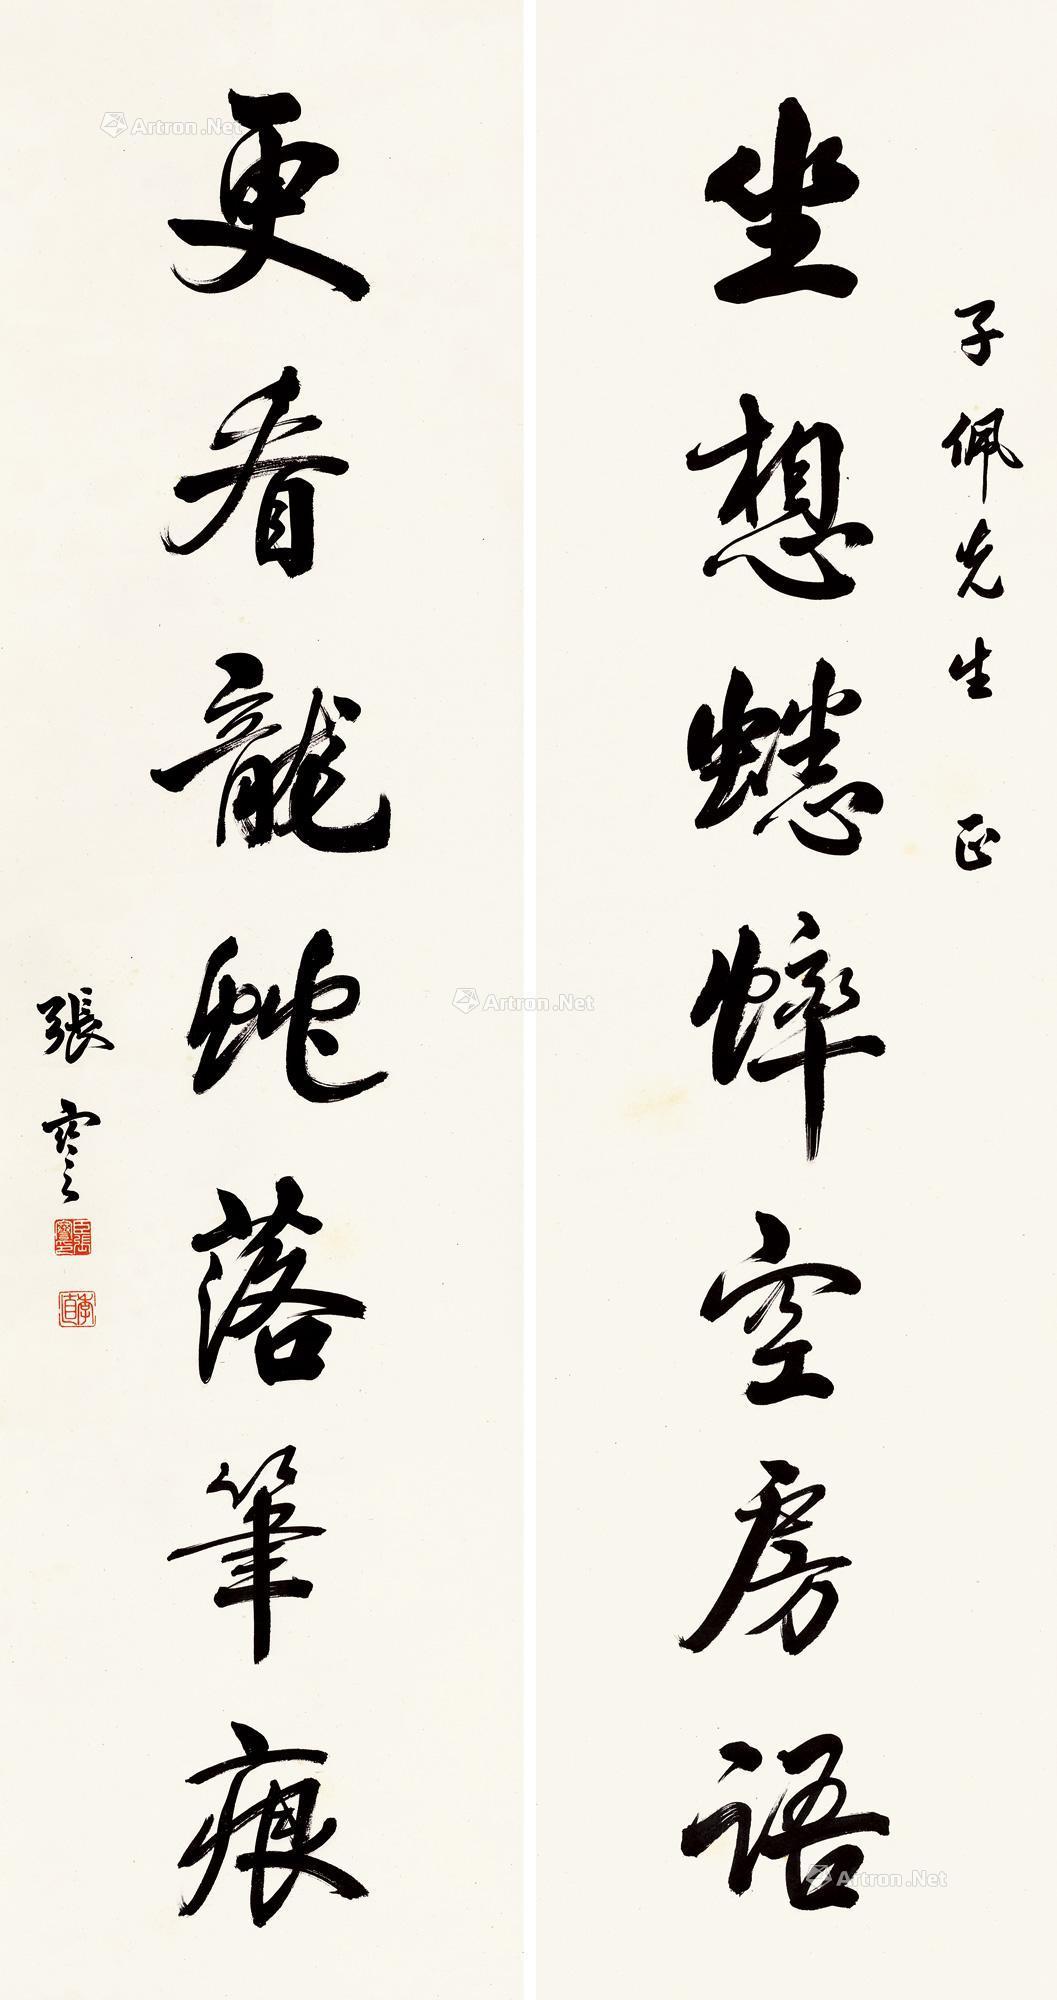 子佩先生 正
坐想蟋蟀空房语
更看龍蛇落筆痕
張謇
季直
Artron.Net
Artron.Net
Artron.Net